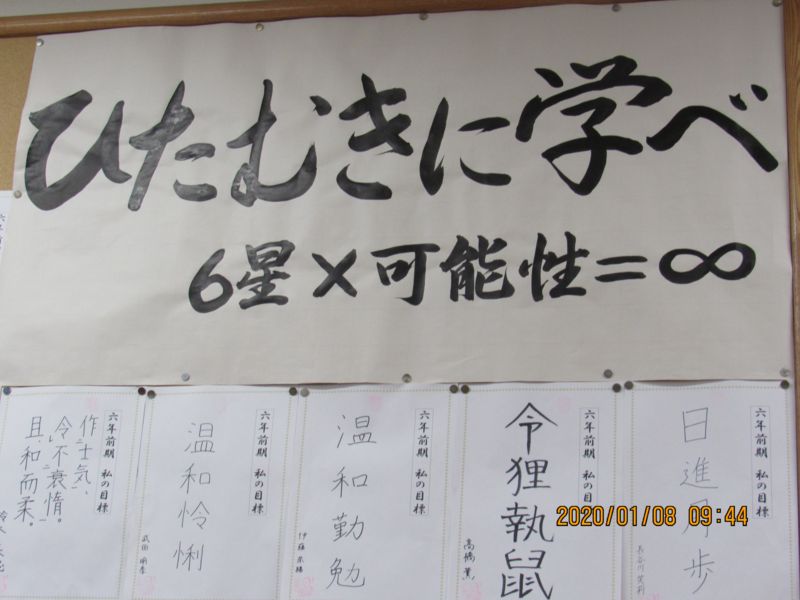 ひたむきに学べ
6星×可能性=∞
六年前期 私の目標
日進月歩
六年前期 私の目標
令狸執鼠
高橋 薫
六年前期 私の目標
温和勤勉
六年前期 私の目標
温和怜悧
六年前期 私の目標
作士気、
令不衰惰。
且、和而柔。
2020/01/08 09:44